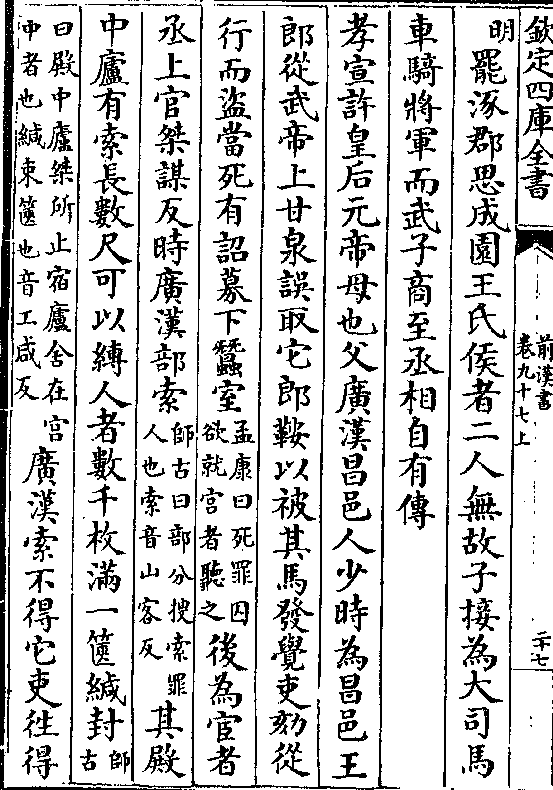 欽定四庫全書
前漢書
卷九十七上
二十七
明
罷涿郡思成園王氏侯者二人無故子接為大司馬
車騎將軍而武子商至丞相自有傳
孝宣許皇后元帝母也父廣漢昌邑人少時為昌邑王
郎從武帝上甘泉誤取它郎鞍以被其馬發覺吏劾從
行而盜當死有詔募下蠶室孟康曰死罪囚欲就宫者聽之後為宦者
丞上官桀謀反時廣漢部索師古曰部分搜索罪人也索音山客反其殿
中廬有索長數尺可以縛人者數千枚滿一篋緘封師古
曰殿中廬桀所止宿廬舍在宮中者也緘束篋也音工咸反廣漢索不得它吏往得